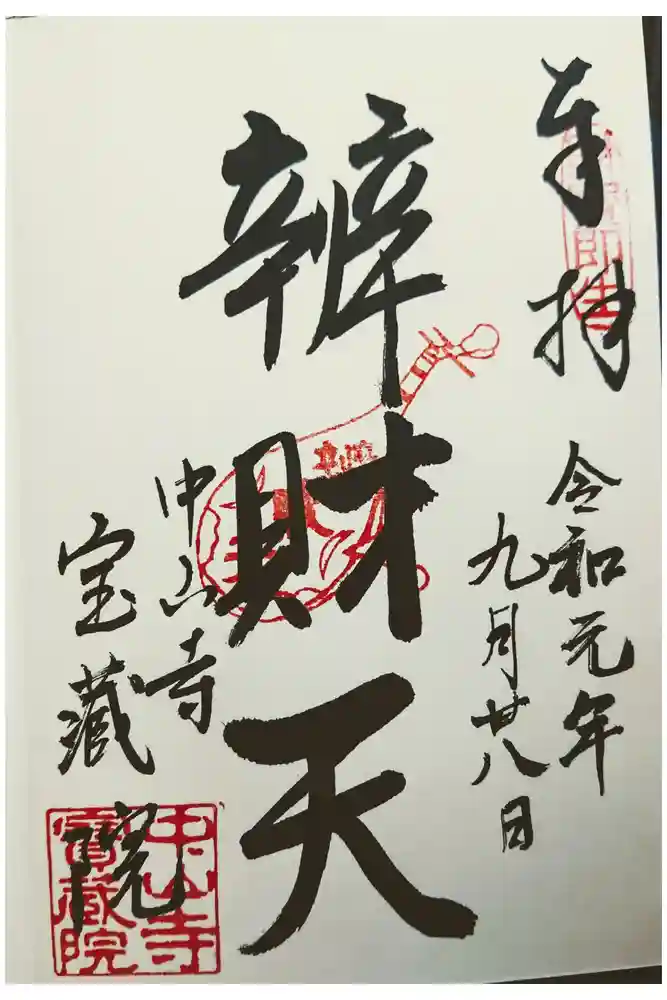 奉拝
令和元年
九月廿八日
辨財天
中山寺
宝蔵院
中山寺
寶蔵院